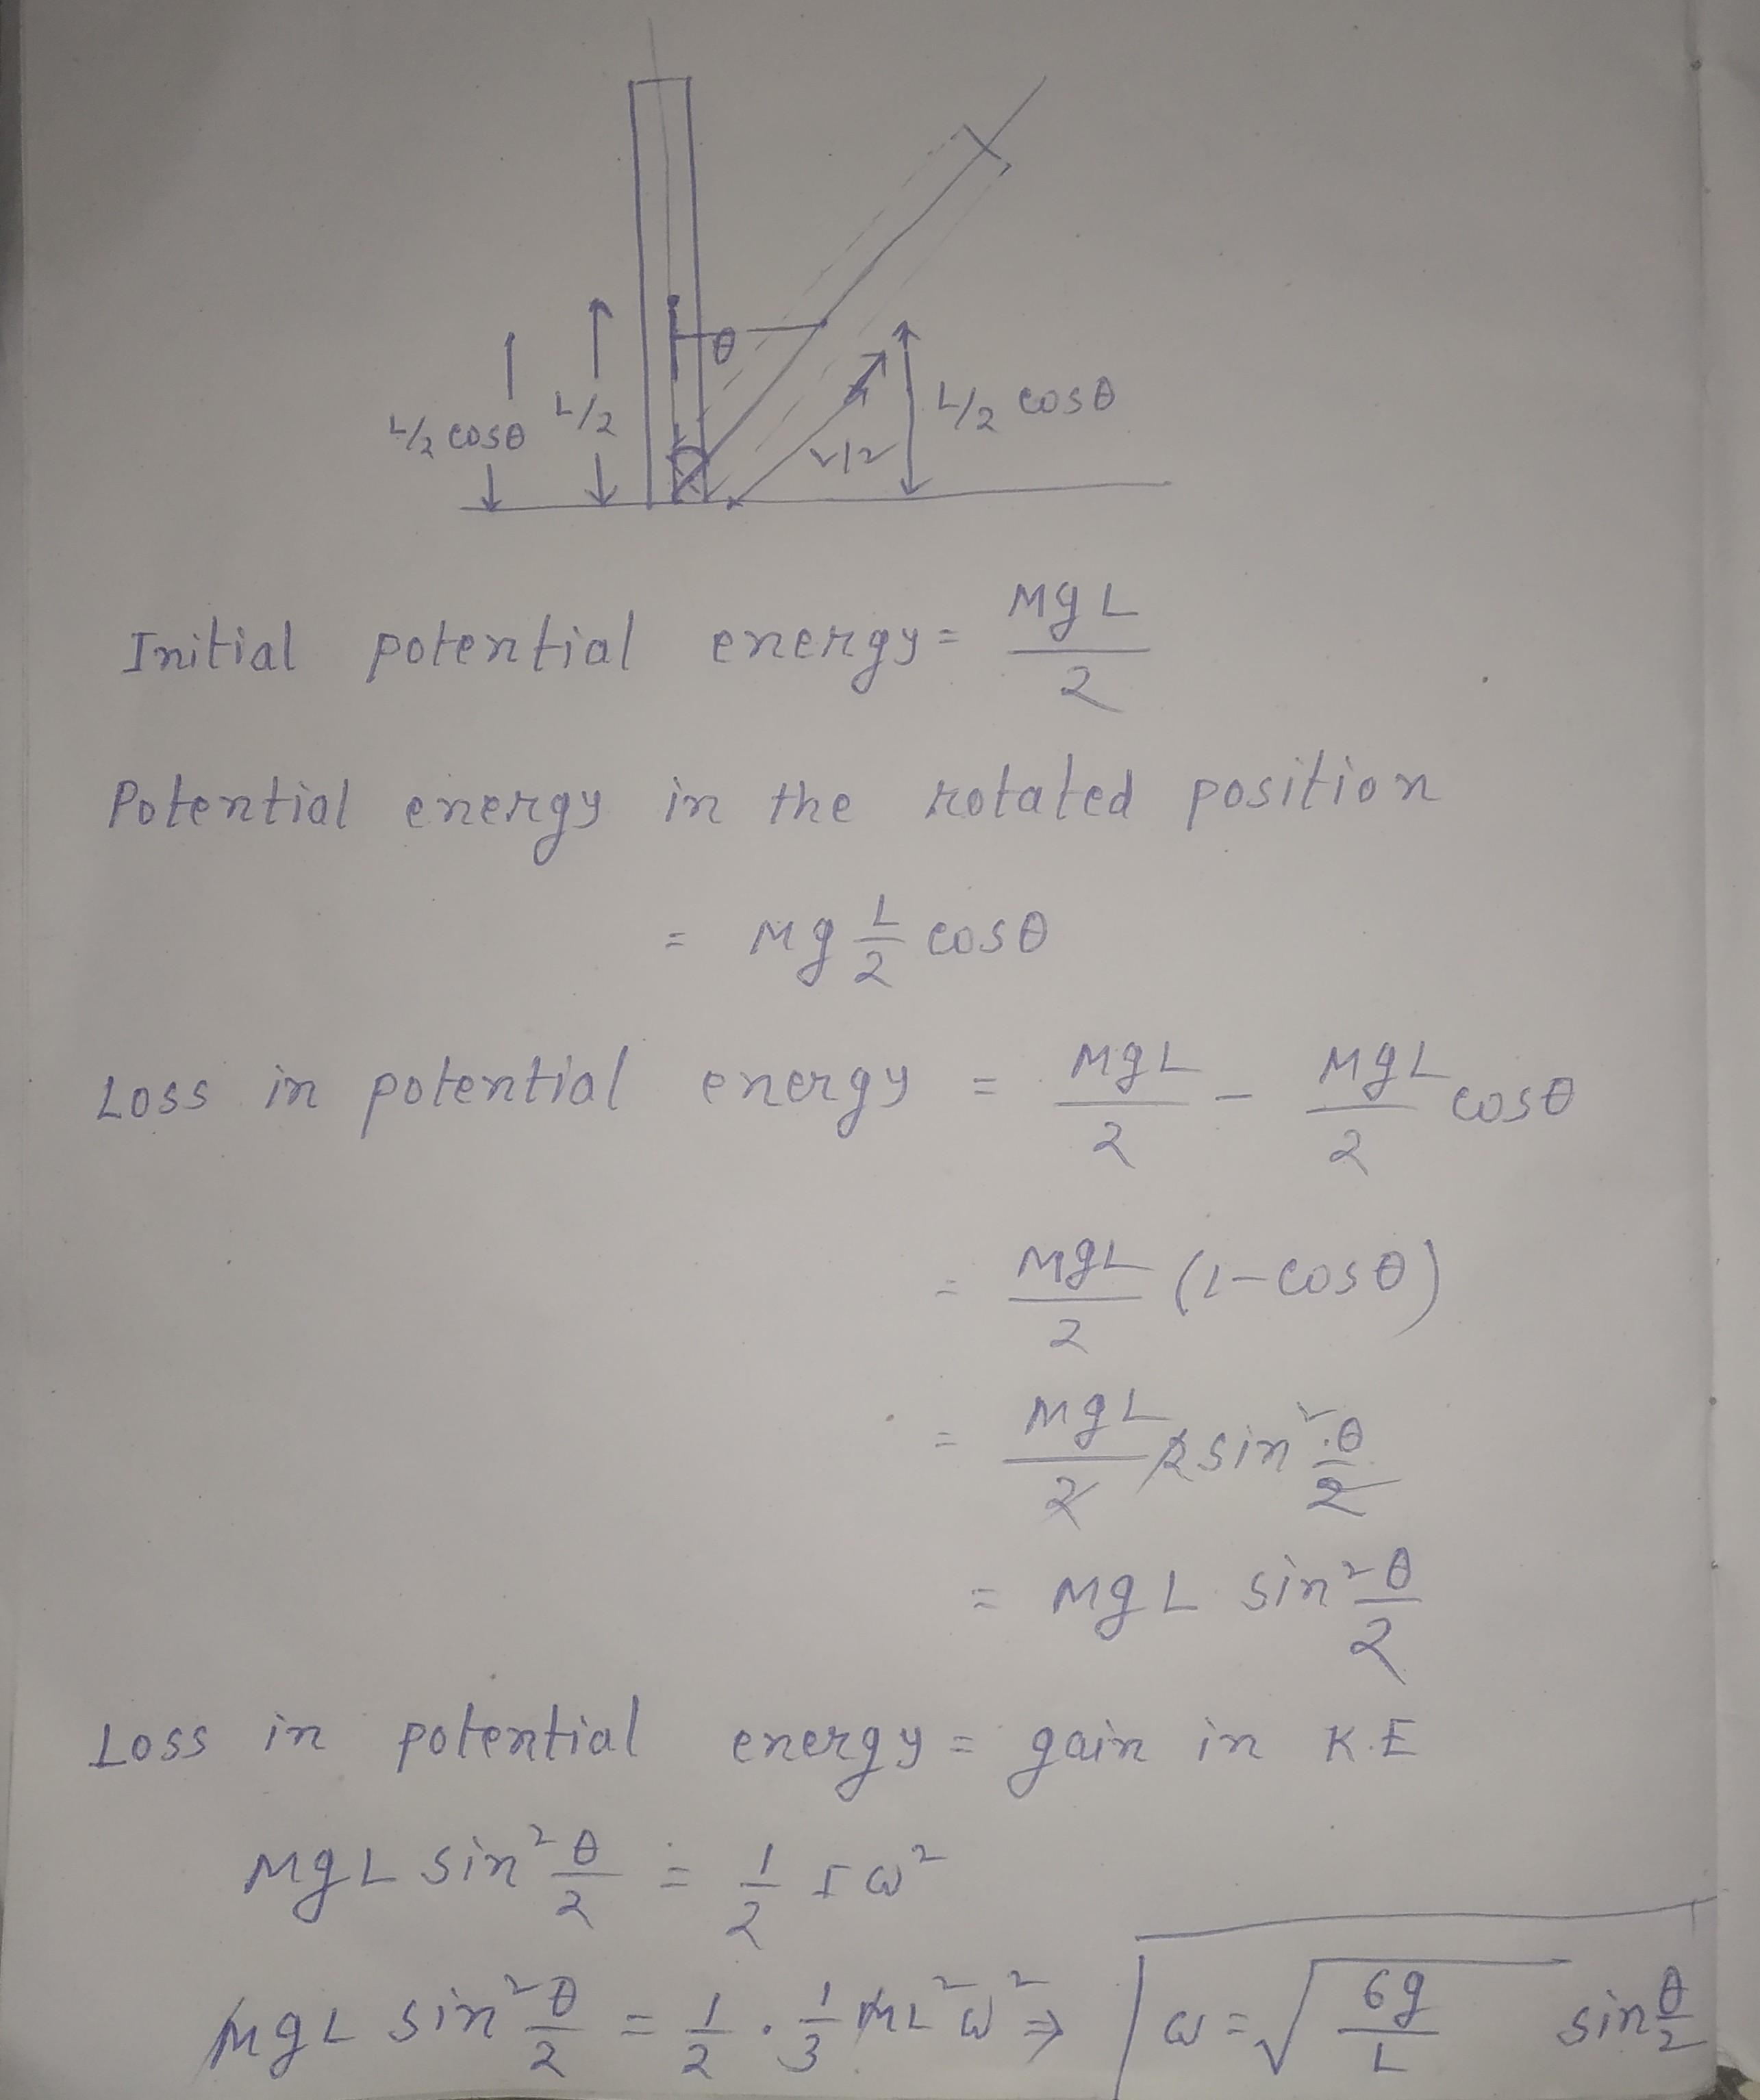 θ
L/2 cosθ
L/2
L/2
L/2 cosθ
Initial potential energy = MgL/2
Potential energy in the rotated position
= Mg L/2 cosθ
Loss in potential energy = MgL/2 - MgL/2 cosθ
= MgL/2 (1-cosθ)
= MgL/2 2sin²θ/2
= MgL sin²θ/2
Loss in potential energy = gain in K.E
MgL sin²θ/2 = 1/2 Iω²
MgL sin²θ/2 = 1/2 · 1/3 ML²ω² ⇒ ω = √(6g/L) sinθ/2